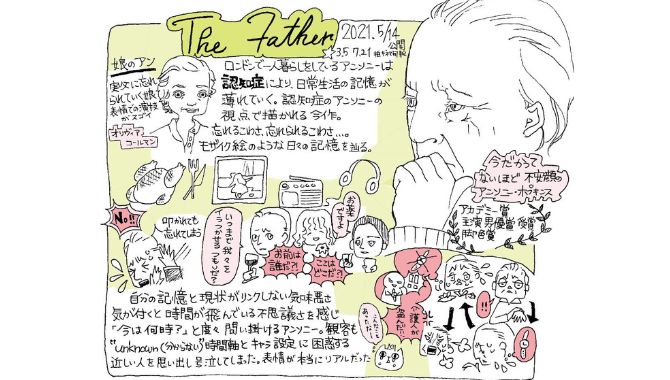 The Father
2021.5/14
公開
娘のアン
実父に忘れら
れていく娘で
表情での演技
がスゴイ
オリヴィア・
コールマン
ロンドンで一人暮らしをしているアンソニーは
認知症により、日常生活の記憶が
薄れていく。認知症のアンソニーの
視点で描かれる今作。
忘れるこわさ、忘れられるこわさ…。
モザイク絵のような日々の記憶を辿る。
今だかつて
ないほど不安顔の
アンソニー・ホプキンス
アカデミー賞
主演男優賞受賞
脚色賞
No!!
叩かれても
忘れてしまう
いつまで我々を
イラつかせるつもりだ?
お薬
ですよ
お前は
誰だ?!
ここは
どこだ?!
介護人が
盗んだ!!
!!
自分の記憶と現状がリンクしない気味悪さ
気が付くと時間が飛んでいる不思議さを感じ
「今は何時?」と度々問い掛けるアンソニー。観客も
"unknown(分からない)"時間軸とキャラ設定に困惑する
近しい人を思い出し号泣してしまった。表情が本当にリアルだった